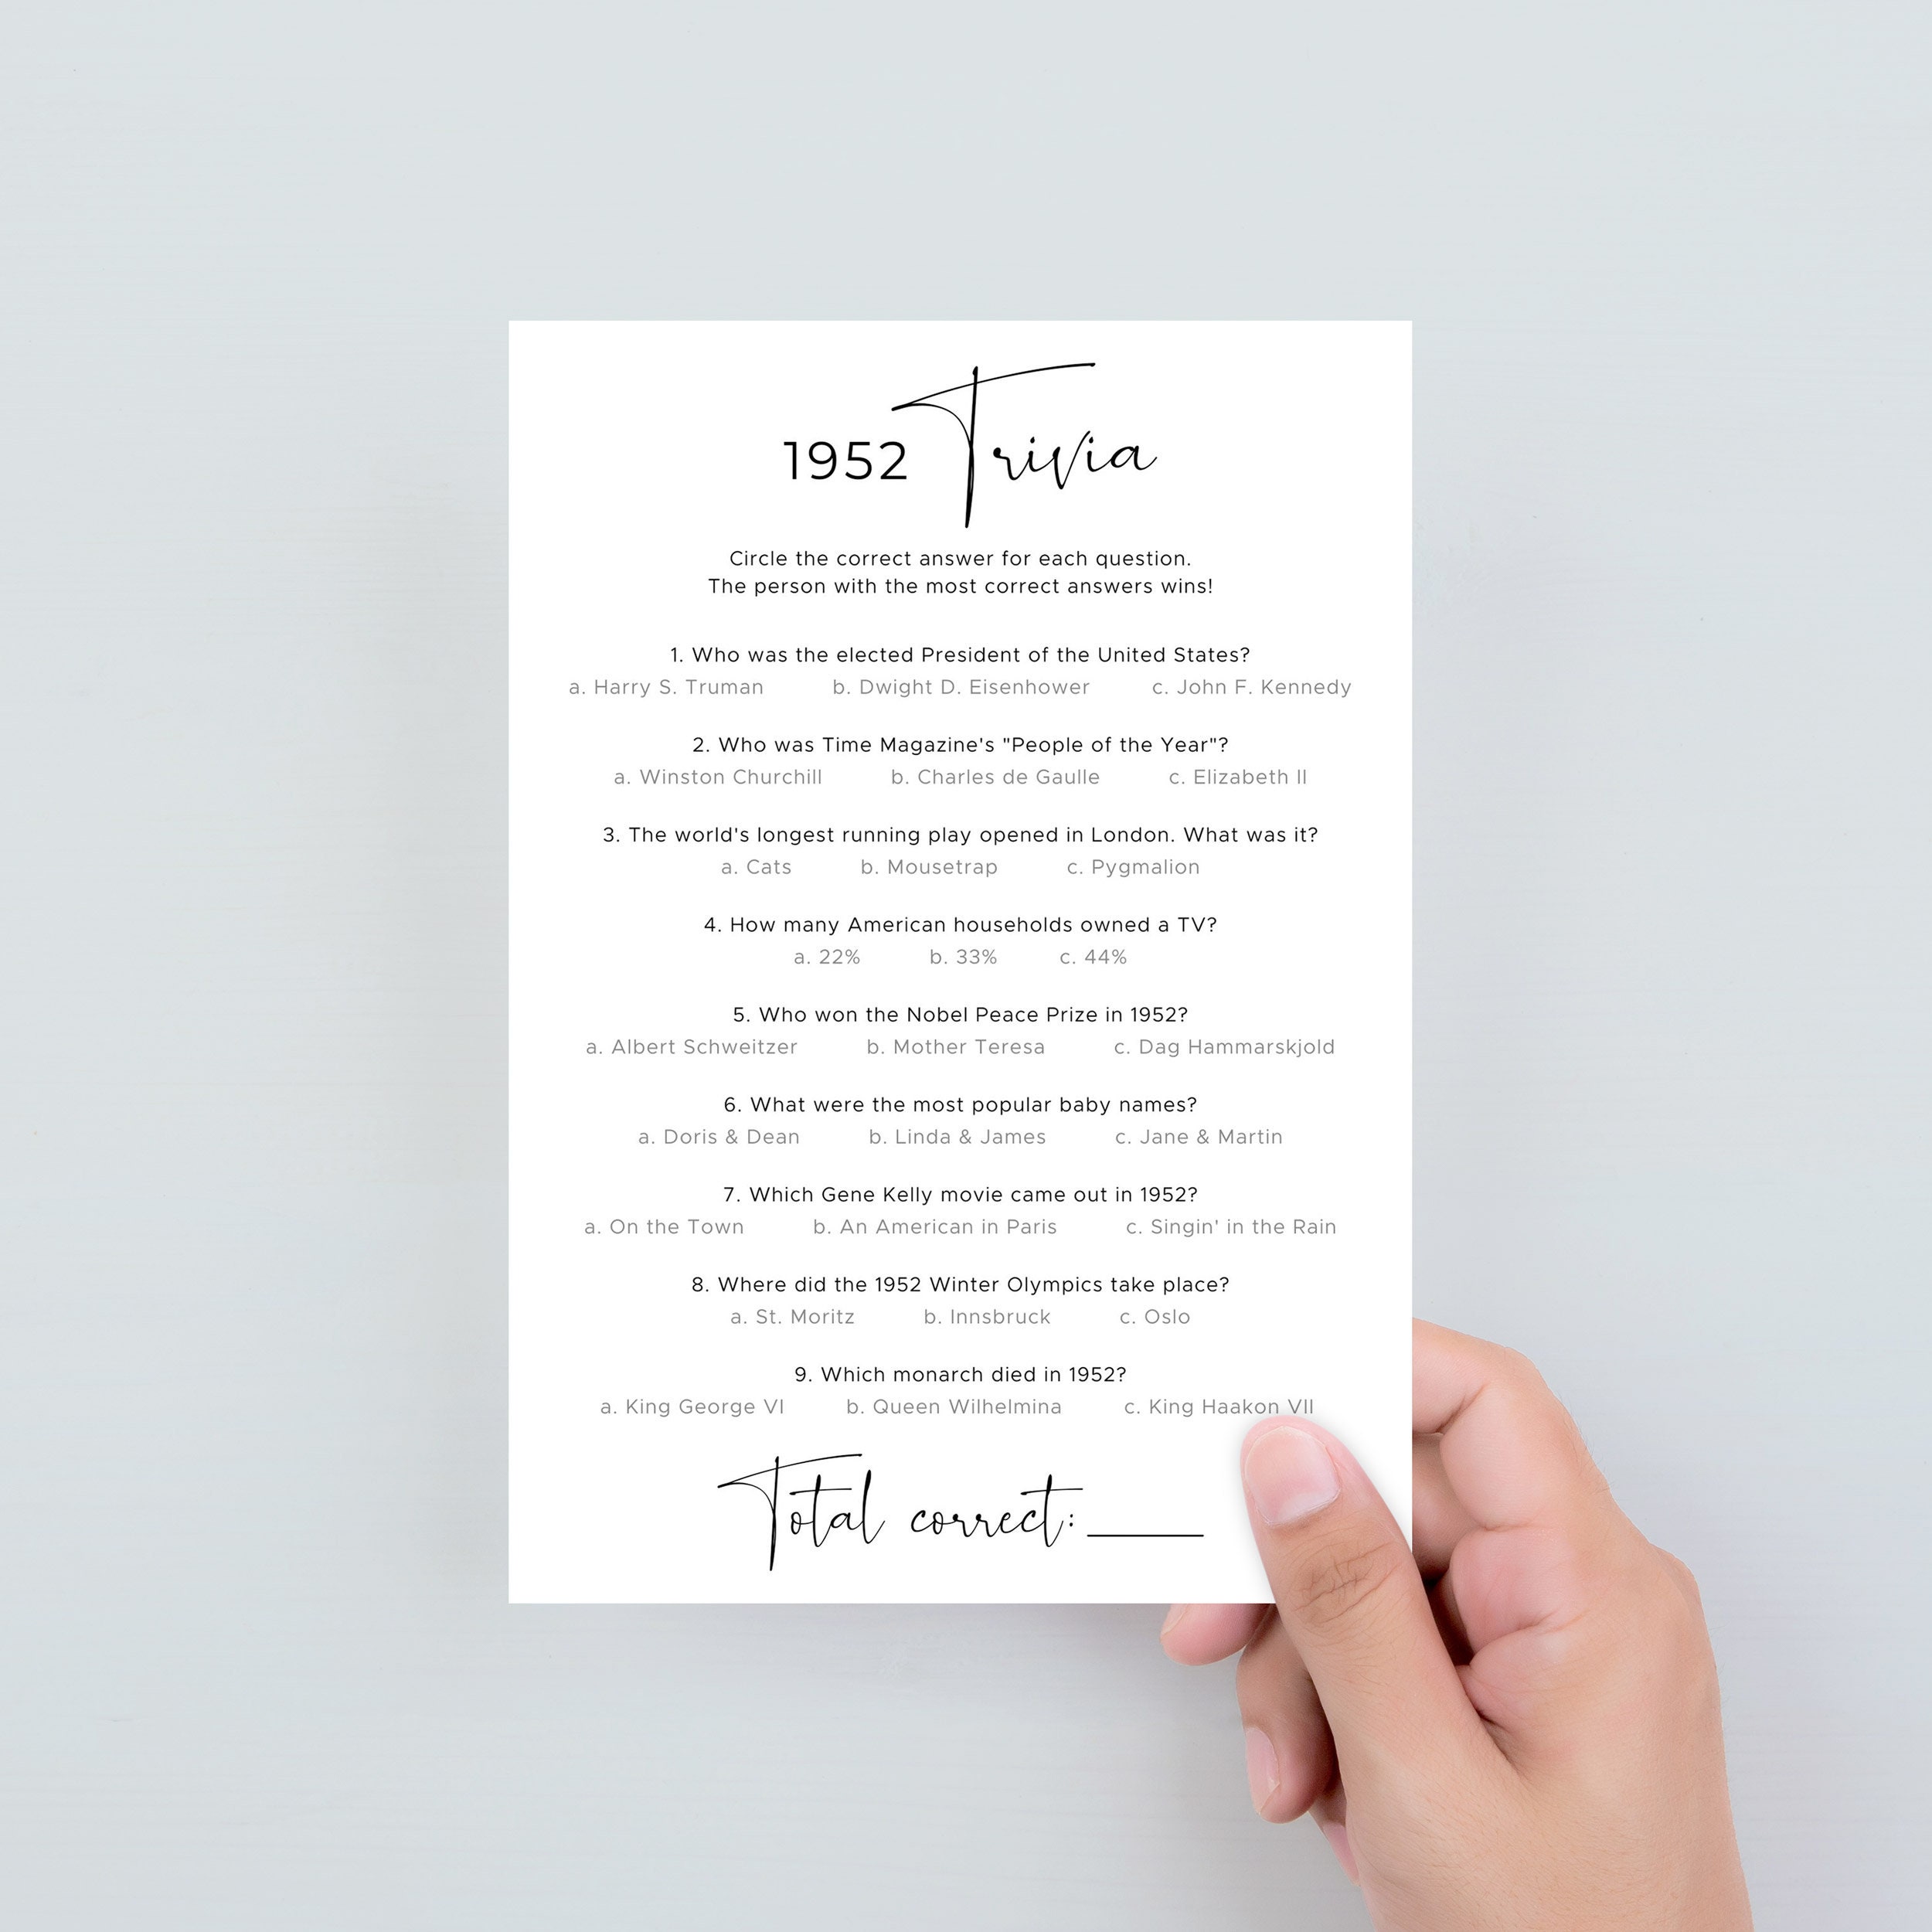 1952 Trivia
Circle the correct answer for each question.
The person with the most correct answers wins!
1. Who was the elected President of the United States?
a. Harry S. Truman b. Dwight D. Eisenhower c. John F. Kennedy
2. Who was Time Magazine's "People of the Year"?
a. Winston Churchill b. Charles de Gaulle c. Elizabeth II
3. The world's longest running play opened in London. What was it?
a. Cats b. Mousetrap c. Pygmalion
4. How many American households owned a TV?
a. 22% b. 33% c. 44%
5. Who won the Nobel Peace Prize in 1952?
a. Albert Schweitzer b. Mother Teresa c. Dag Hammarskjold
6. What were the most popular baby names?
a. Doris & Dean b. Linda & James c. Jane & Martin
7. Which Gene Kelly movie came out in 1952?
a. On the Town b. An American in Paris c. Singin' in the Rain
8. Where did the 1952 Winter Olympics take place?
a. St. Moritz b. Innsbruck c. Oslo
9. Which monarch died in 1952?
a. King George VI b. Queen Wilhelmina c. King Haakon VII
Total correct: _____